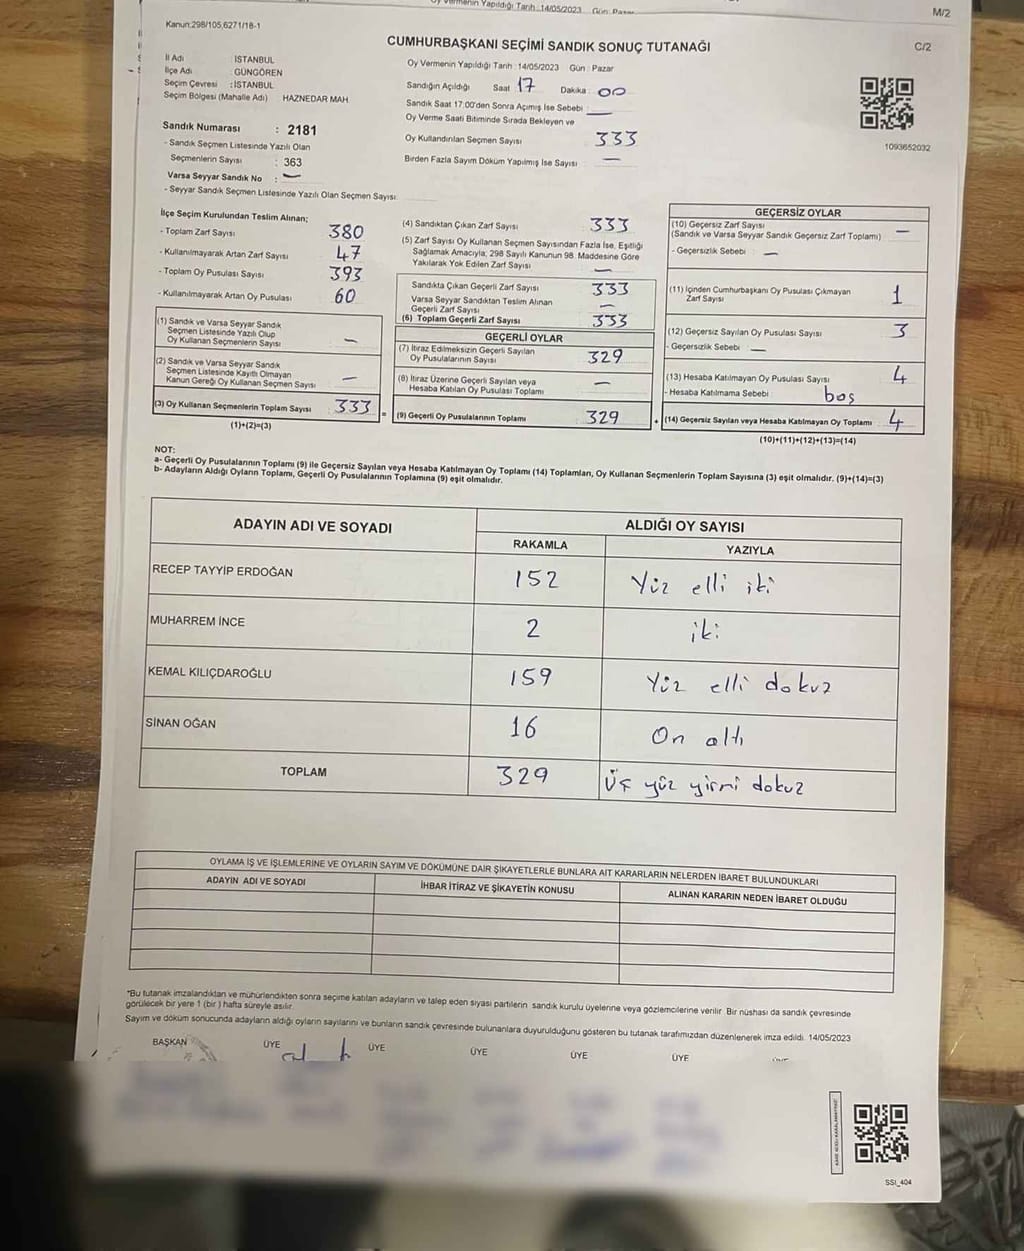 Oy Vermenin Yapıldığı Tarih :14/05/2023 Gün: Pazar
M/2
Kanun:298/105,6271/18-1
CUMHURBAŞKANI SEÇİMİ SANDIK SONUÇ TUTANAĞI
C/2
İl Adı : İSTANBUL
İlçe Adı : GÜNGÖREN
Seçim Çevresi : İSTANBUL
Seçim Bölgesi (Mahalle Adı) HAZNEDAR MAH.
Oy Vermenin Yapıldığı Tarih :14/05/2023 Gün : Pazar
Sandığın Açıldığı Saat 17 Dakika : 00
Sandık Saat 17:00'den Sonra Açımış İse Sebebi : —
Oy Verme Saati Bitiminde Sırada Bekleyen ve
Oy Kullandırılan Seçmen Sayısı 333
Birden Fazla Sayım Döküm Yapılmış İse Sayısı —
1093652032
Sandık Numarası : 2181
- Sandık Seçmen Listesinde Yazılı Olan
Seçmenlerin Sayısı : 363
Varsa Seyyar Sandık No : —
- Seyyar Sandık Seçmen Listesinde Yazılı Olan Seçmen Sayısı:
İlçe Seçim Kurulundan Teslim Alınan;
- Toplam Zarf Sayısı 380
- Kullanılmayarak Artan Zarf Sayısı 47
- Toplam Oy Pusulası Sayısı 393
- Kullanılmayarak Artan Oy Pusulası 60
(1) Sandık ve Varsa Seyyar Sandık
Seçmen Listesinde Yazılı Olup
Oy Kullanan Seçmenlerin Sayısı —
(2) Sandık ve Varsa Seyyar Sandık
Seçmen Listesinde Kayıtlı Olmayan
Kanun Gereği Oy Kullanan Seçmen Sayısı —
(3) Oy Kullanan Seçmenlerin Toplam Sayısı 333 =
(1)+(2)=(3)
(4) Sandıktan Çıkan Zarf Sayısı 333
(5) Zarf Sayısı Oy Kullanan Seçmen Sayısından Fazla İse, Eşitliği
Sağlamak Amacıyla; 298 Sayılı Kanunun 98. Maddesine Göre
Yakılarak Yok Edilen Zarf Sayısı —
Sandıkta Çıkan Geçerli Zarf Sayısı 333
Varsa Seyyar Sandıktan Teslim Alınan
Geçerli Zarf Sayısı —
(6) Toplam Geçerli Zarf Sayısı 333
GEÇERLİ OYLAR
(7) İtiraz Edilmeksizin Geçerli Sayılan
Oy Pusulalarının Sayısı 329
(8) İtiraz Üzerine Geçerli Sayılan veya
Hesaba Katılan Oy Pusulası Toplamı —
(9) Geçerli Oy Pusulalarının Toplamı 329 +
GEÇERSİZ OYLAR
(10) Geçersiz Zarf Sayısı
(Sandık ve Varsa Seyyar Sandık Geçersiz Zarf Toplamı) —
- Geçersizlik Sebebi : —
(11) İçinden Cumhurbaşkanı Oy Pusulası Çıkmayan
Zarf Sayısı 1
(12) Geçersiz Sayılan Oy Pusulası Sayısı 3
- Geçersizlik Sebebi : —
(13) Hesaba Katılmayan Oy Pusulası Sayısı 4
- Hesaba Katılmama Sebebi : boş
(14) Geçersiz Sayılan veya Hesaba Katılmayan Oy Toplamı 4
(10)+(11)+(12)+(13)=(14)
NOT:
a- Geçerli Oy Pusulalarının Toplamı (9) ile Geçersiz Sayılan veya Hesaba Katılmayan Oy Toplamı (14) Toplamları, Oy Kullanan Seçmenlerin Toplam Sayısına (3) eşit olmalıdır. (9)+(14)=(3)
b- Adayların Aldığı Oyların Toplamı, Geçerli Oy Pusulalarının Toplamına (9) eşit olmalıdır.
ADAYIN ADI VE SOYADI ALDIĞI OY SAYISI
RAKAMLA YAZIYLA
RECEP TAYYİP ERDOĞAN 152 Yüz elli iki
MUHARREM İNCE 2 iki
KEMAL KILIÇDAROĞLU 159 Yüz elli dokuz
SİNAN OĞAN 16 On altı
TOPLAM 329 Üç yüz yirmi dokuz
OYLAMA İŞ VE İŞLEMLERİNE VE OYLARIN SAYIM VE DÖKÜMÜNE DAİR ŞİKAYETLERLE BUNLARA AİT KARARLARIN NELERDEN İBARET BULUNDUKLARI
ADAYIN ADI VE SOYADI İHBAR İTİRAZ VE ŞİKAYETİN KONUSU ALINAN KARARIN NEDEN İBARET OLDUĞU
*Bu tutanak imzalandıktan ve mühürlendikten sonra seçime katılan adayların ve talep eden siyasi partilerin sandık kurulu üyelerine veya gözlemcilerine verilir. Bir nüshası da sandık çevresinde
görülecek bir yere 1 (bir ) hafta süreyle asılır.
Sayım ve döküm sonucunda adayların aldığı oyların sayılarını ve bunların sandık çevresinde bulunanlara duyurulduğunu gösteren bu tutanak tarafımızdan düzenlenerek imza edildi. 14/05/2023
BAŞKAN ÜYE ÜYE ÜYE ÜYE ÜYE
SSİ_404